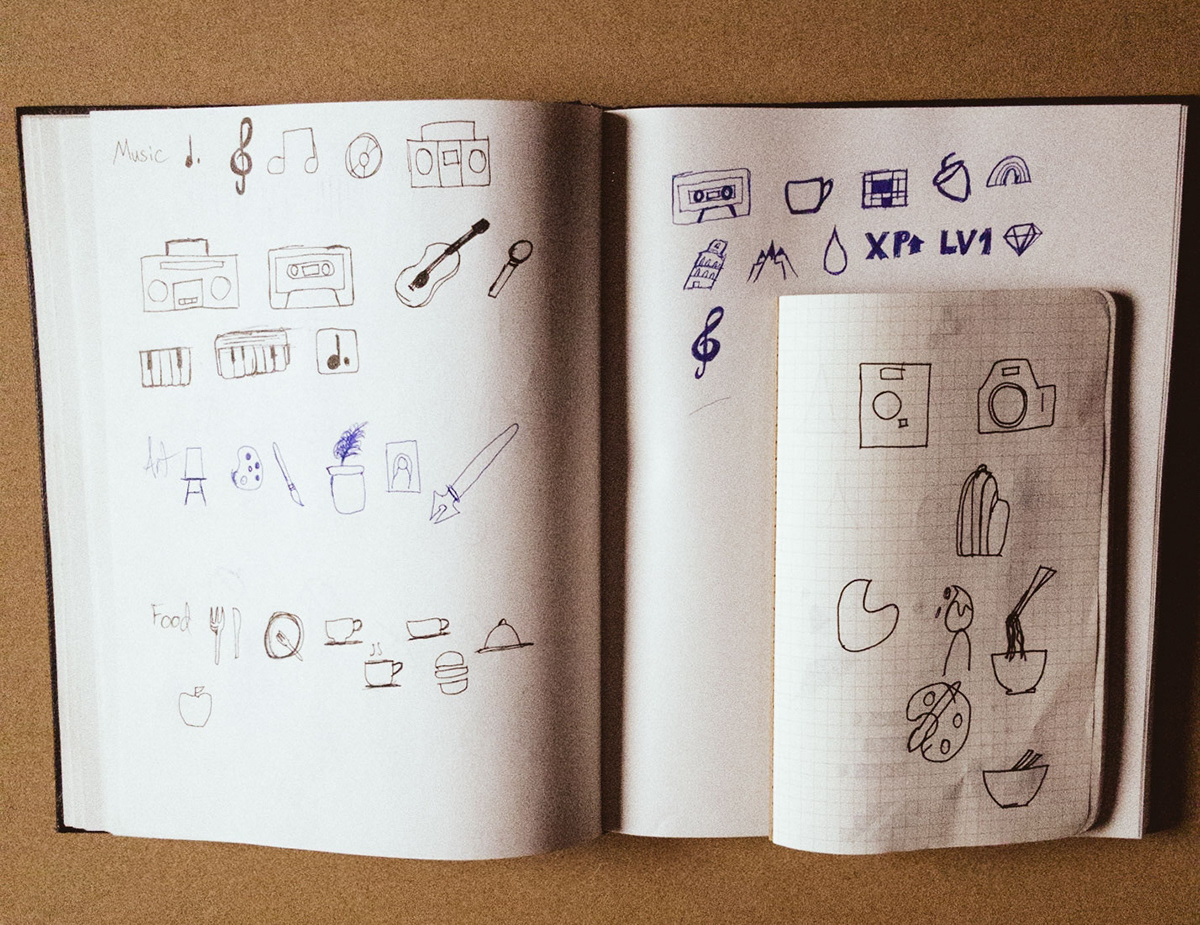 Music
Art
Food
XP LV1